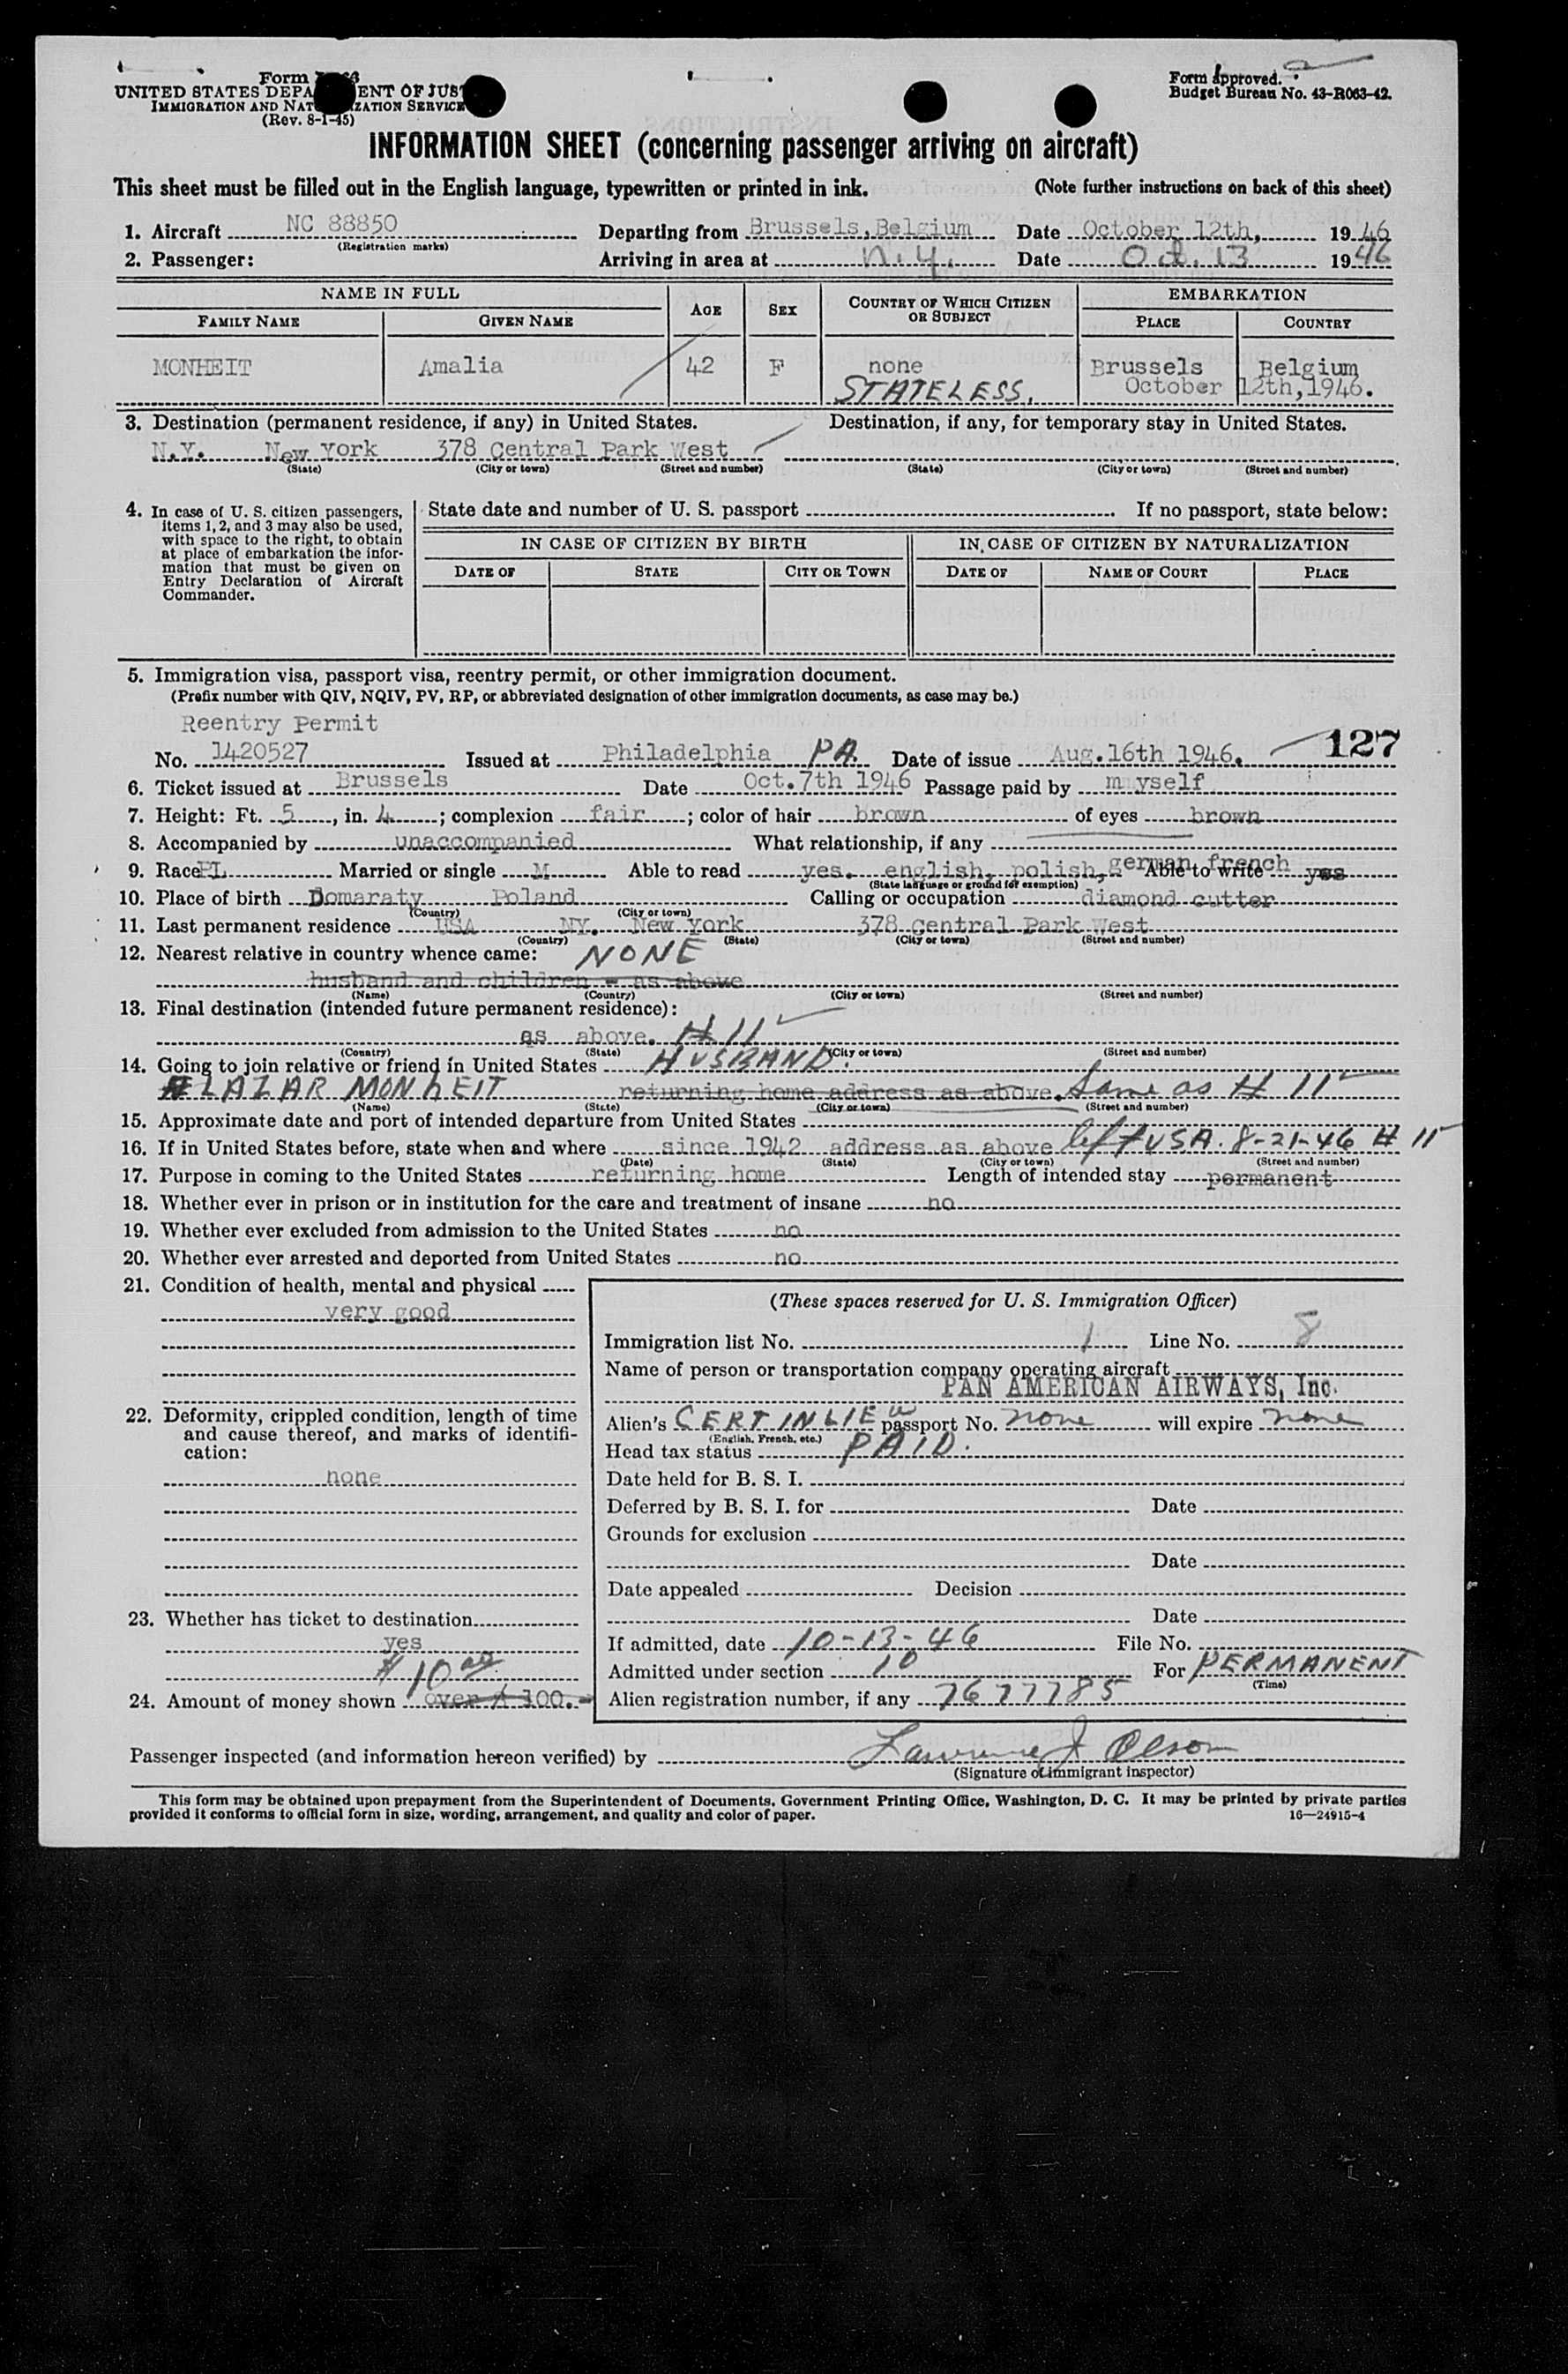 Form
UNITED STATES DEPA ENT OF JUS
IMMIGRATION AND NAT IZATION SERVICE
(Rev. 8-1-45)
Form approved.
Budget Bureau No. 43-R063-42.
INFORMATION SHEET (concerning passenger arriving on aircraft)
This sheet must be filled out in the English language, typewritten or printed in ink. (Note further instructions on back of this sheet)
1. Aircraft NC 88850 Departing from Brussels, Belgium Date October 12th, 1946
(Registration marks)
2. Passenger: Arriving in area at N.Y. Date Oct. 13 1946
NAME IN FULL AGE SEX COUNTRY OF WHICH CITIZEN OR SUBJECT EMBARKATION
FAMILY NAME GIVEN NAME PLACE COUNTRY
MONHEIT Amalia 42 F none Brussels Belgium
STATELESS. October 12th, 1946.
3. Destination (permanent residence, if any) in United States. Destination, if any, for temporary stay in United States.
N.Y. New York 378 Central Park West
(State) (City or town) (Street and number) (State) (City or town) (Street and number)
4. In case of U. S. citizen passengers, items 1, 2, and 3 may also be used, with space to the right, to obtain at place of embarkation the information that must be given on Entry Declaration of Aircraft Commander.
State date and number of U. S. passport If no passport, state below:
IN CASE OF CITIZEN BY BIRTH IN CASE OF CITIZEN BY NATURALIZATION
DATE OF STATE CITY OR TOWN DATE OF NAME OF COURT PLACE
5. Immigration visa, passport visa, reentry permit, or other immigration document.
(Prefix number with QIV, NQIV, PV, RP, or abbreviated designation of other immigration documents, as case may be.)
Reentry Permit
No. 1420527 Issued at Philadelphia PA. Date of issue Aug. 16th 1946. 127
6. Ticket issued at Brussels Date Oct. 7th 1946 Passage paid by m yself
7. Height: Ft. 5, in. 4; complexion fair; color of hair brown of eyes brown
8. Accompanied by unaccompanied What relationship, if any
9. Race PL Married or single M Able to read yes. english, polish, german french Able to write yes
(State language or ground for exemption)
10. Place of birth Domaraty Poland Calling or occupation diamond cutter
(Country) (City or town)
11. Last permanent residence USA NY. New York 378 Central Park West
(Country) (State) (City or town) (Street and number)
12. Nearest relative in country whence came: NONE
husband and children - as above
(Name) (Country) (City or town) (Street and number)
13. Final destination (intended future permanent residence):
as above. # 11
(Country) (State) (City or town) (Street and number)
14. Going to join relative or friend in United States HUSBAND.
LAZAR MONHEIT returning home address as above. Same as # 11
(Name) (State) (City or town) (Street and number)
15. Approximate date and port of intended departure from United States
16. If in United States before, state when and where since 1942 address as above left USA. 8-21-46 # 11
(Date) (State) (City or town) (Street and number)
17. Purpose in coming to the United States returning home Length of intended stay permanent
18. Whether ever in prison or in institution for the care and treatment of insane no
19. Whether ever excluded from admission to the United States no
20. Whether ever arrested and deported from United States no
21. Condition of health, mental and physical
very good
22. Deformity, crippled condition, length of time and cause thereof, and marks of identification:
none
23. Whether has ticket to destination
yes
$ 10 00
24. Amount of money shown over $ 100.-
(These spaces reserved for U. S. Immigration Officer)
Immigration list No. 1 Line No. 8
Name of person or transportation company operating aircraft
PAN AMERICAN AIRWAYS, Inc.
Alien's CERT IN LIEU passport No. none will expire none
(English, French, etc.)
Head tax status PAID.
Date held for B. S. I.
Deferred by B. S. I. for Date
Grounds for exclusion
Date
Date appealed Decision
Date
If admitted, date 10-13-46 File No.
Admitted under section 10 For PERMANENT
(Time)
Alien registration number, if any 7677785
Passenger inspected (and information hereon verified) by Lawrence J Olson
(Signature of immigrant inspector)
This form may be obtained upon prepayment from the Superintendent of Documents, Government Printing Office, Washington, D. C. It may be printed by private parties
provided it conforms to official form in size, wording, arrangement, and quality and color of paper. 16—24915-4